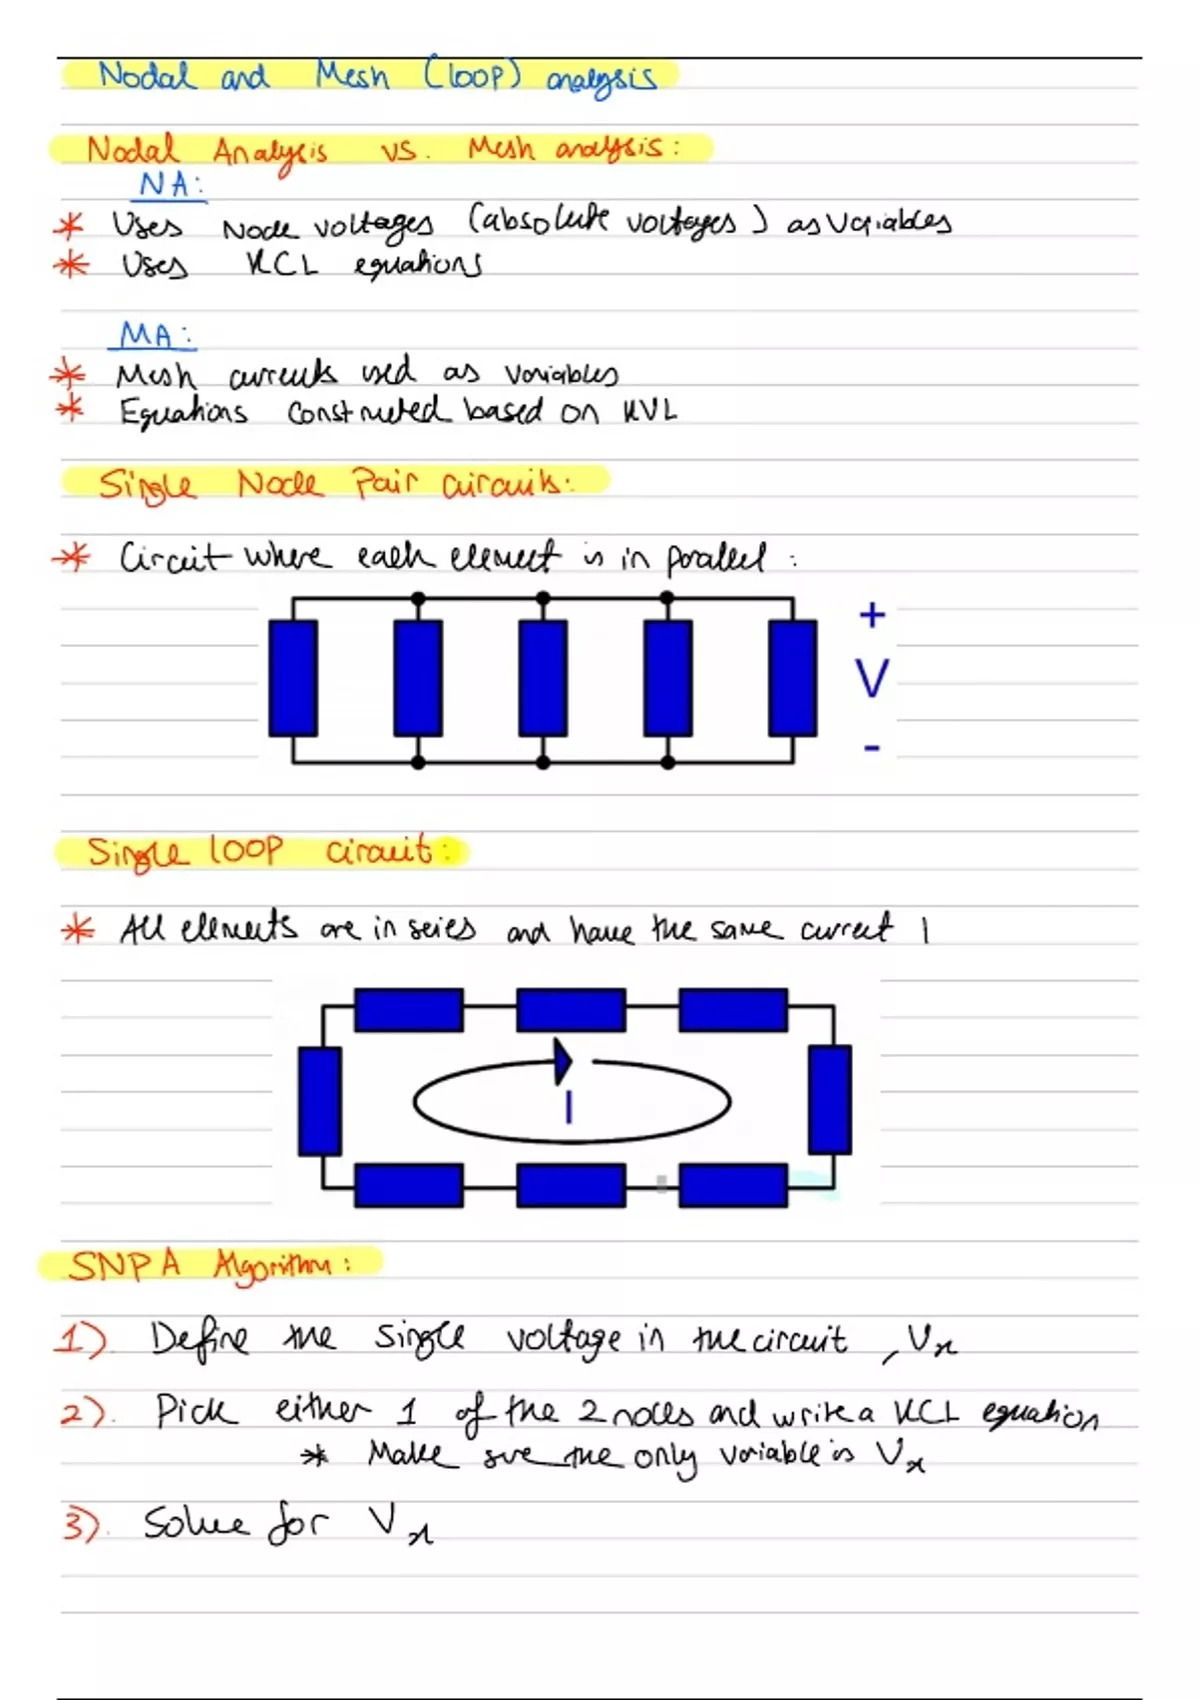 Nodal and Mesh (loop) analysis
Nodal Analysis vs. Mesh analysis:
NA:
* Uses Node voltages (absolute voltages) as variables
* Uses KCL equations
MA:
* Mesh currents used as variables
* Equations constructed based on KVL
Single Node Pair circuits:
* Circuit where each element is in parallel :
+
V
-
Single loop circuit:
* All elements are in series and have the same current I
I
SNPA Algorithm:
1). Define the single voltage in the circuit, Vx
2). Pick either 1 of the 2 nodes and write a KCL equation
* Make sure the only variable is Vx
3). Solve for Vx